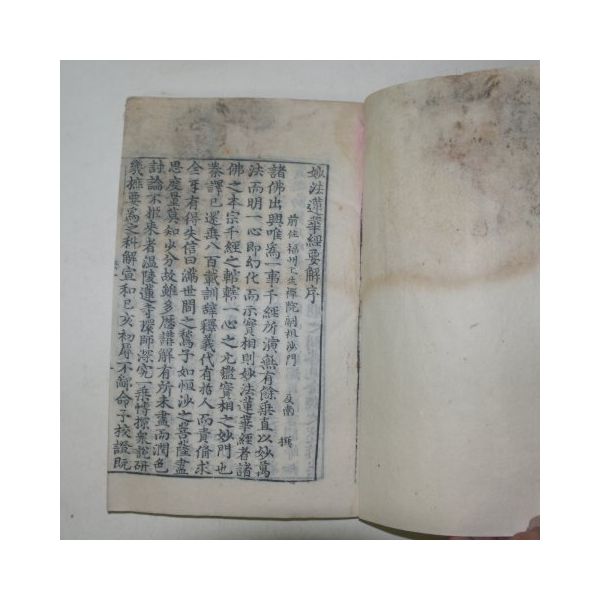 妙法蓮華經要解序
前住福州上生禪院嗣祖沙門 及南 撰
諸佛出興唯爲一事千經所演無有餘乘直以妙萬
法而明一心即幻化而示實相則妙法蓮華經者諸
佛之本宗千經之輨轄一心之元鑑實相之妙門也
秦譯已還無八百載訓譁釋義代有哲人而責備求
全互有得失信曰滿世間之鶖子如恒沙之菩薩盡
思度量莫知少分故雖多歷諸解有所未盡而潤色
討論不
來者溫陵蓮寺環師深究一乘愽採衆說研
幾摭要爲之科解宣和己亥初辱不鄙命予挍證阮